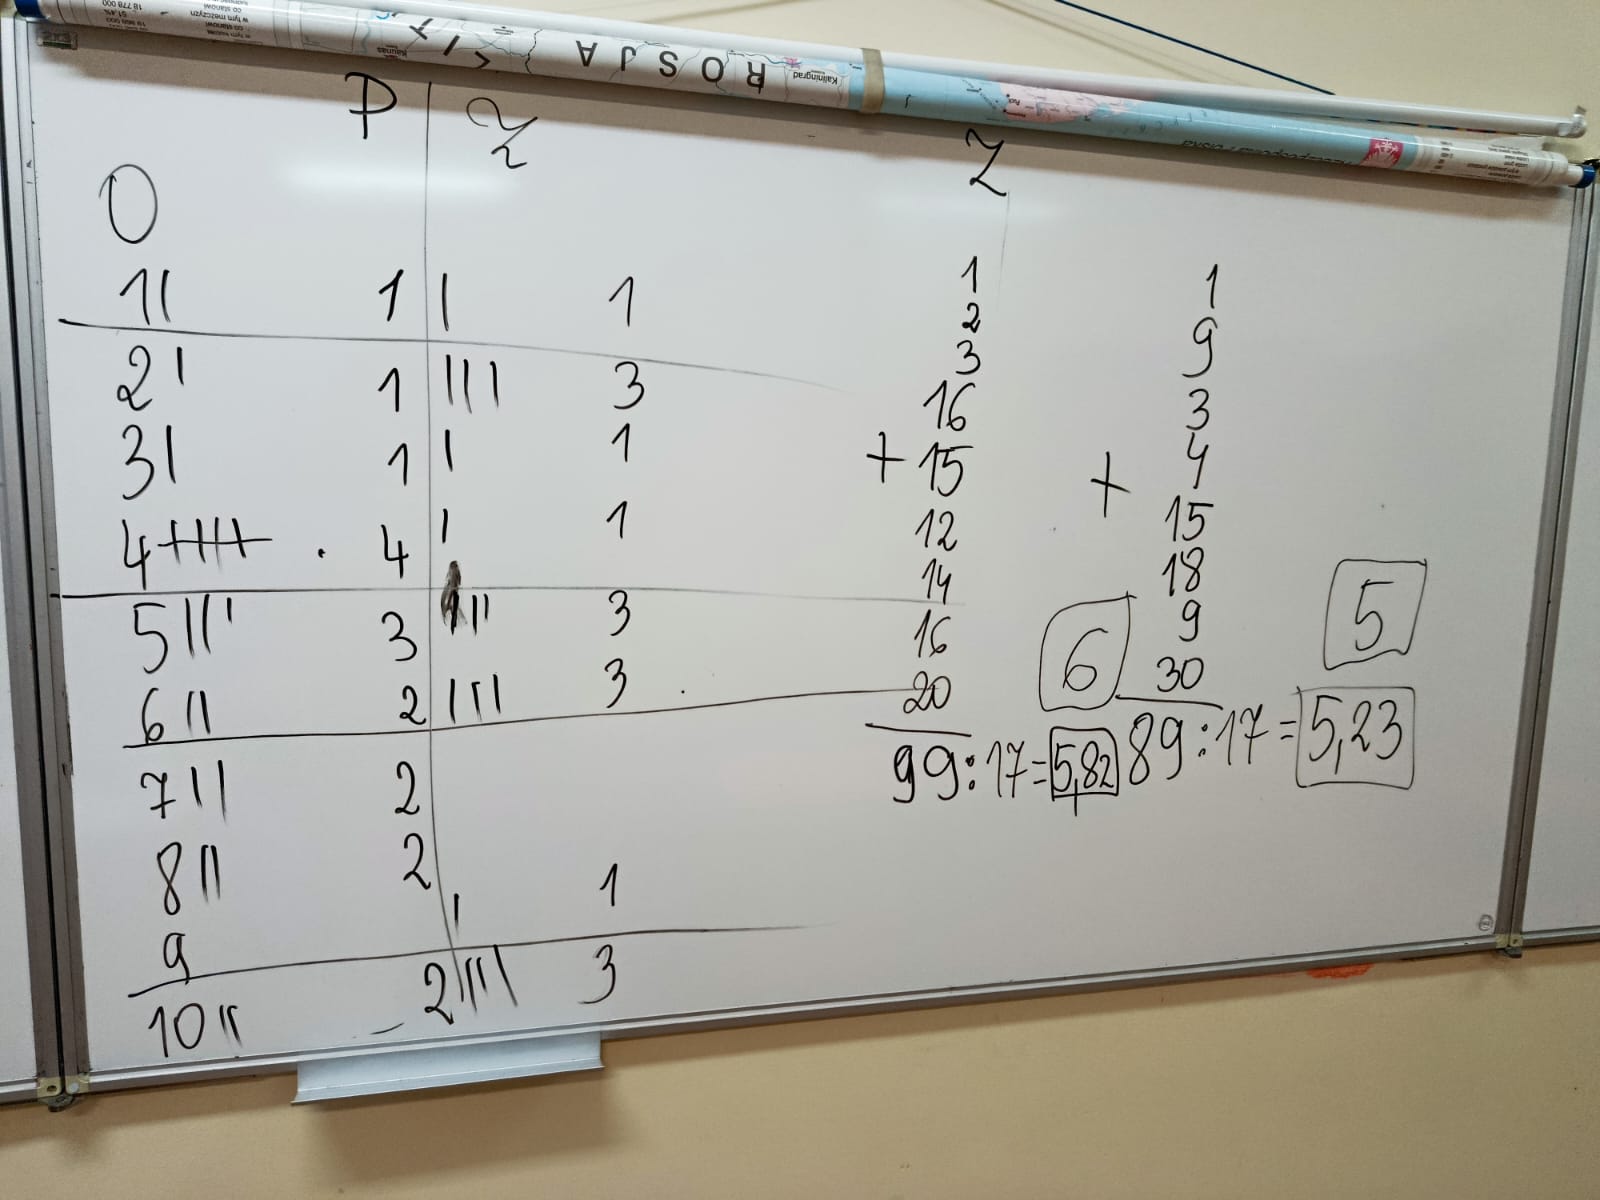 ROSJA
Kaliningrad
Kaunas
P
Z
0
1 | 1 | 1 1 1
2 | 1 ||| 3 2 9
3 | 1 | 1 3 3
4 |||| 4 | 1 16 4
5 ||| 3 ||| 3 + 15 + 15
6 || 2 ||| 3 12 18
7 || 2 14 9
8 || 2 16 30
9 | 1 20
10 || 2 ||| 3
6
5
99:17=5,82
89:17=5,23